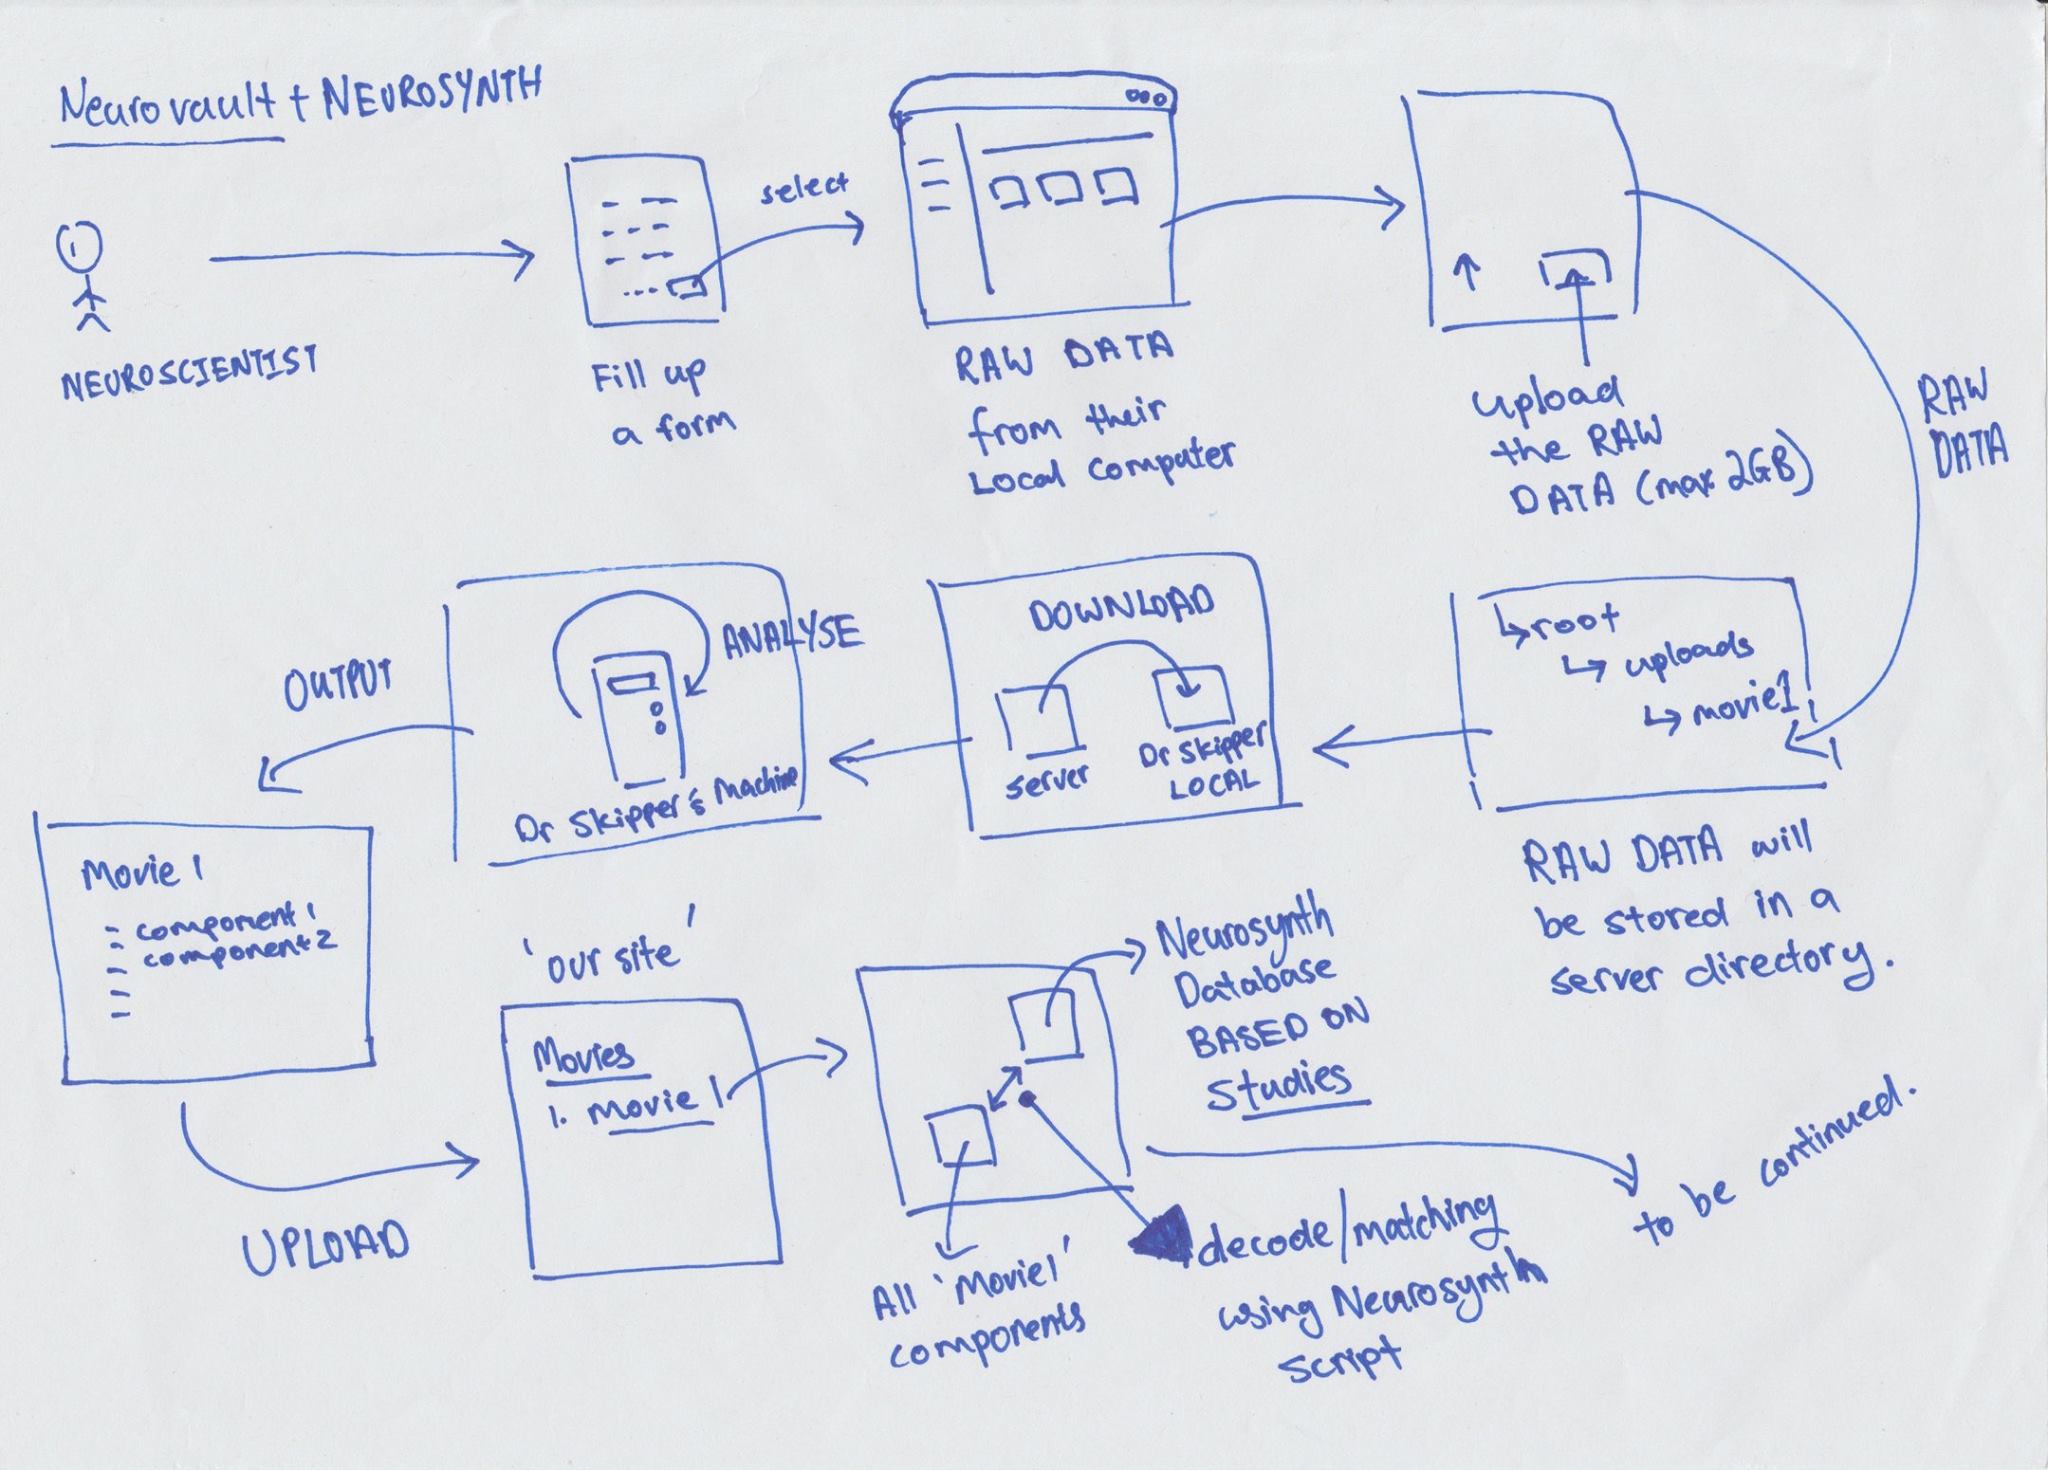 Neurovault + NEUROSYNTH
NEUROSCIENTIST
Fill up
a form
select
RAW DATA
from their
Local computer
upload
the RAW
DATA (max 2GB)
RAW
DATA
root
uploads
movie1
RAW DATA will
be stored in a
server directory.
DOWNLOAD
server
Dr Skipper
LOCAL
ANALYSE
Dr Skipper's Machine
OUTPUT
Movie 1
- component 1
- component 2
UPLOAD
'our site'
Movies
1. Movie 1
Neurosynth
Database
BASED ON
Studies
All 'Movie1'
components
decode/matching
using Neurosynth
script
to be continued.